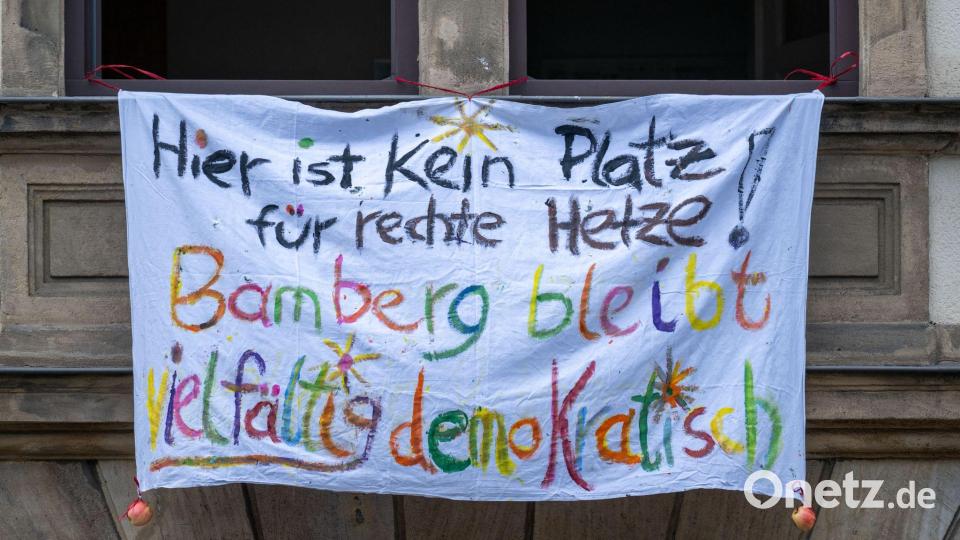 Hier ist Kein Platz
für rechte Hetze!
Bamberg bleibt
vielfältig demokratisch
Onetz.de